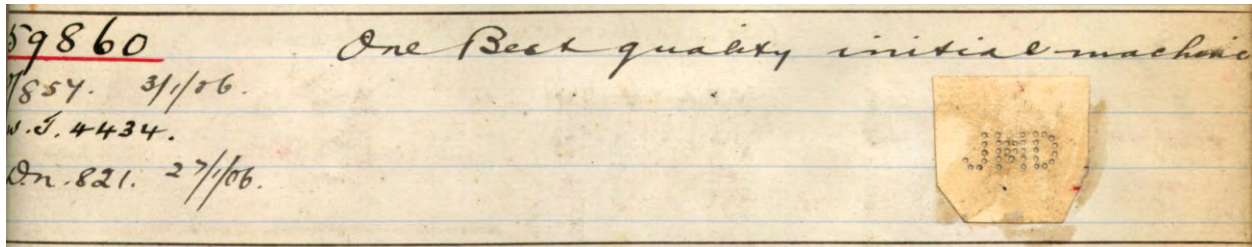 59860 One Best quality initial machine
7/857. 3/1/06.
W.J. 4434.
Dn. 821. 27/1/06.